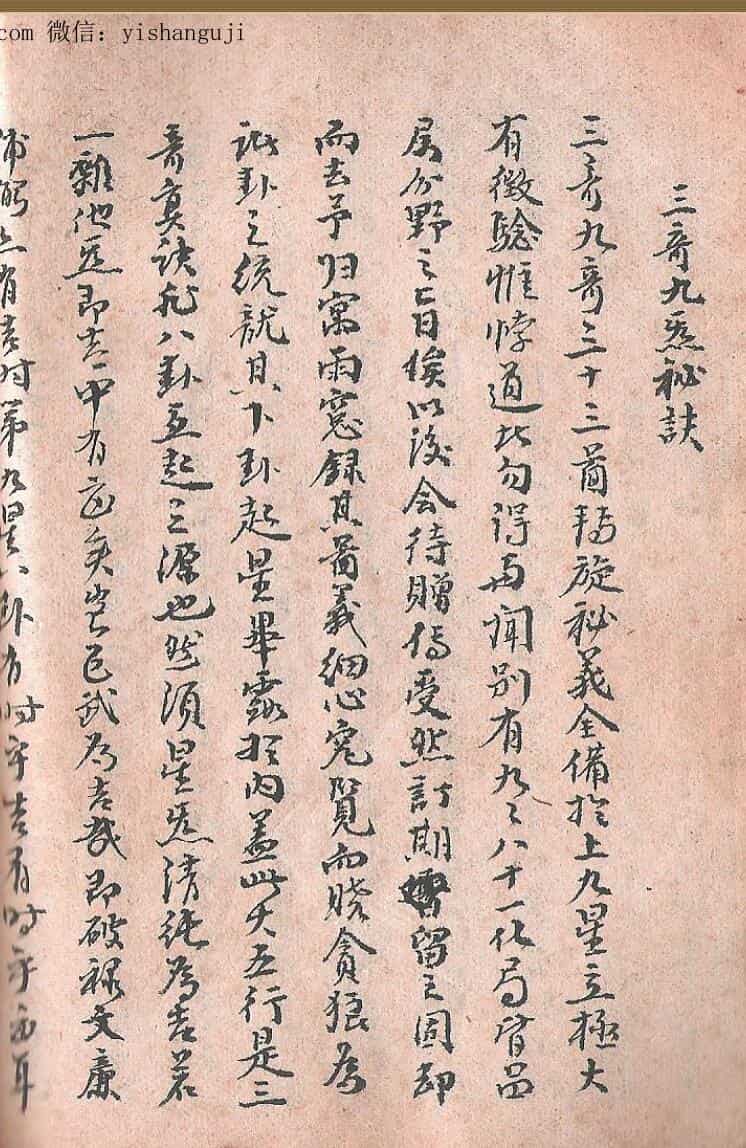 com 微信：yishanguji
三奇九炁秘訣
三奇九奇三十三啚轉旋秘義全備於上九星立極大
有徵騐惟悖道者勿得与聞別有九〻八十一化局皆
分野之旨俟以後会待贈傳受然訂期留之固却
而去予归寓雨窓録其啚義細心究覽而賎貪狼為
諸卦之統就其下卦起星畢露於内盖此大五行是三
奇真訣非八卦五起之源也然須星炁清純為吉若
一雜他炁即吉中有凶矣豈巨武為吉哉即破禄文廉
輔弼亦有吉时第九星八卦有时乎吉有时乎凶耳